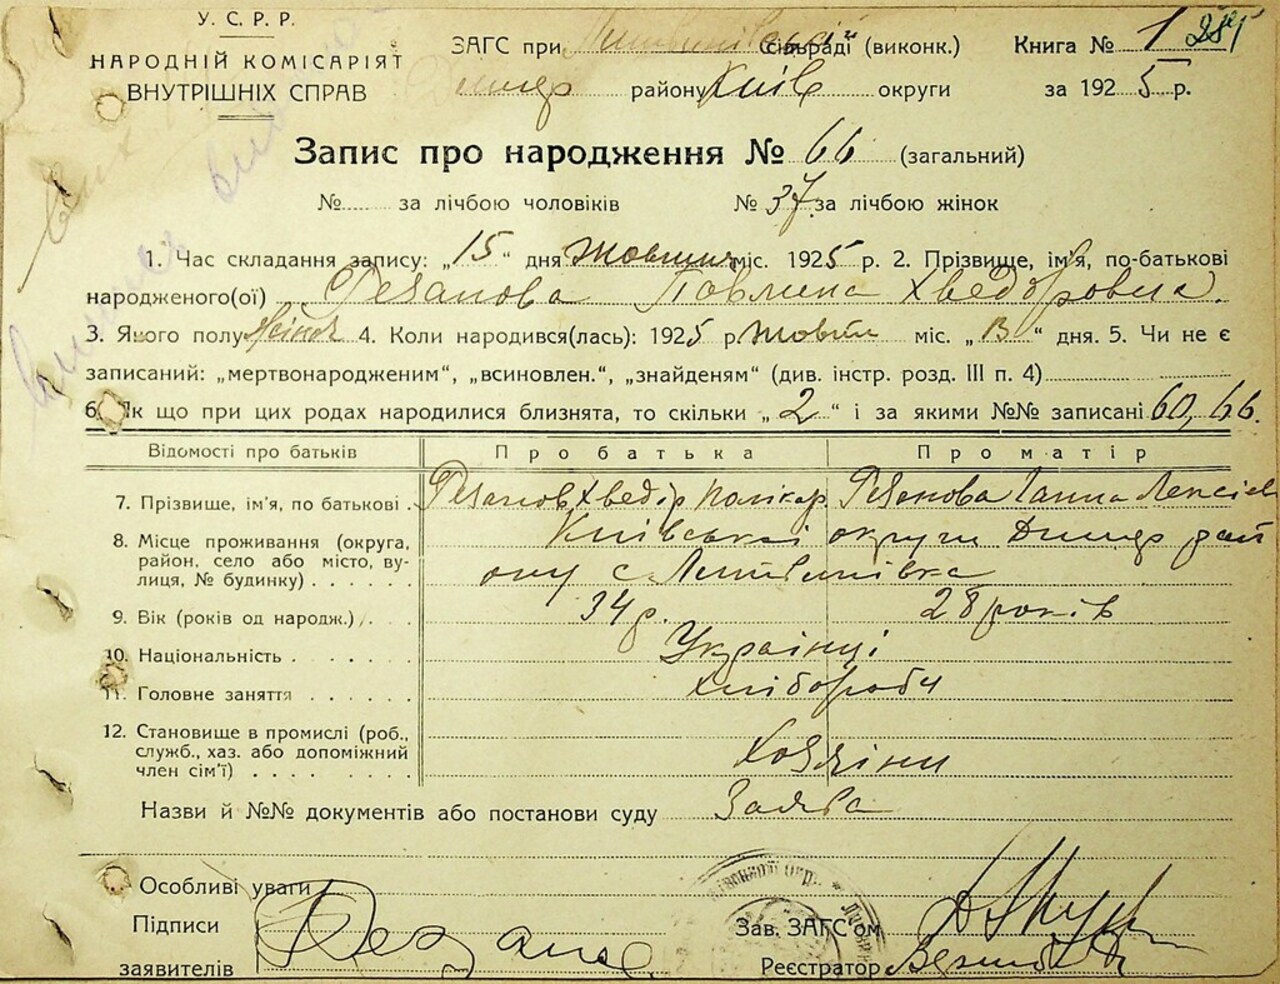 У. С. Р. Р.
НАРОДНІЙ КОМІСАРІЯТ
ВНУТРІШНІХ СПРАВ
ЗАГС при сільраді (виконк.) Книга № 1
Димер району Київ округи за 1925 р.
Запис про народження № 66 (загальний)
№ за лічбою чоловіків № 37 за лічбою жінок
1. Час складання запису: „15“ дня Жовтня міс. 1925 р. 2. Прізвище, ім'я, по-батькові
народженого(ої) Резанова Павлина Хведоровна.
3. Якого полу Жіноч 4. Коли народився(лась): 1925 р. Жовтн міс. „13“ дня. 5. Чи не є
записаний: „мертвонародженим“, „всиновлен.“, „знайденям“ (див. інстр. розд. III п. 4)
6. Як що при цих родах народилися близнята, то скільки „2“ і за якими №№ записані 60, 66.
Відомості про батьків Про батька Про матір
7. Прізвище, ім'я, по батькові Резанов Хведір Полікар Резанова Ганна Лексіев
8. Місце проживання (округа, Київської округи Димер рай
район, село або місто, ву-
лиця, № будинку) ону с. Литвинівка
9. Вік (років од народж.) 34 р. 28 років
10. Національність Українці
11. Головне заняття хлібороби
12. Становище в промислі (роб.,
служб., хаз. або допоміжний Хозяіни
член сім'ї)
Назви й №№ документів або постанови суду Заява
Особливі уваги
Підписи
Зав. ЗАГС'ом
заявителів
Реєстратор